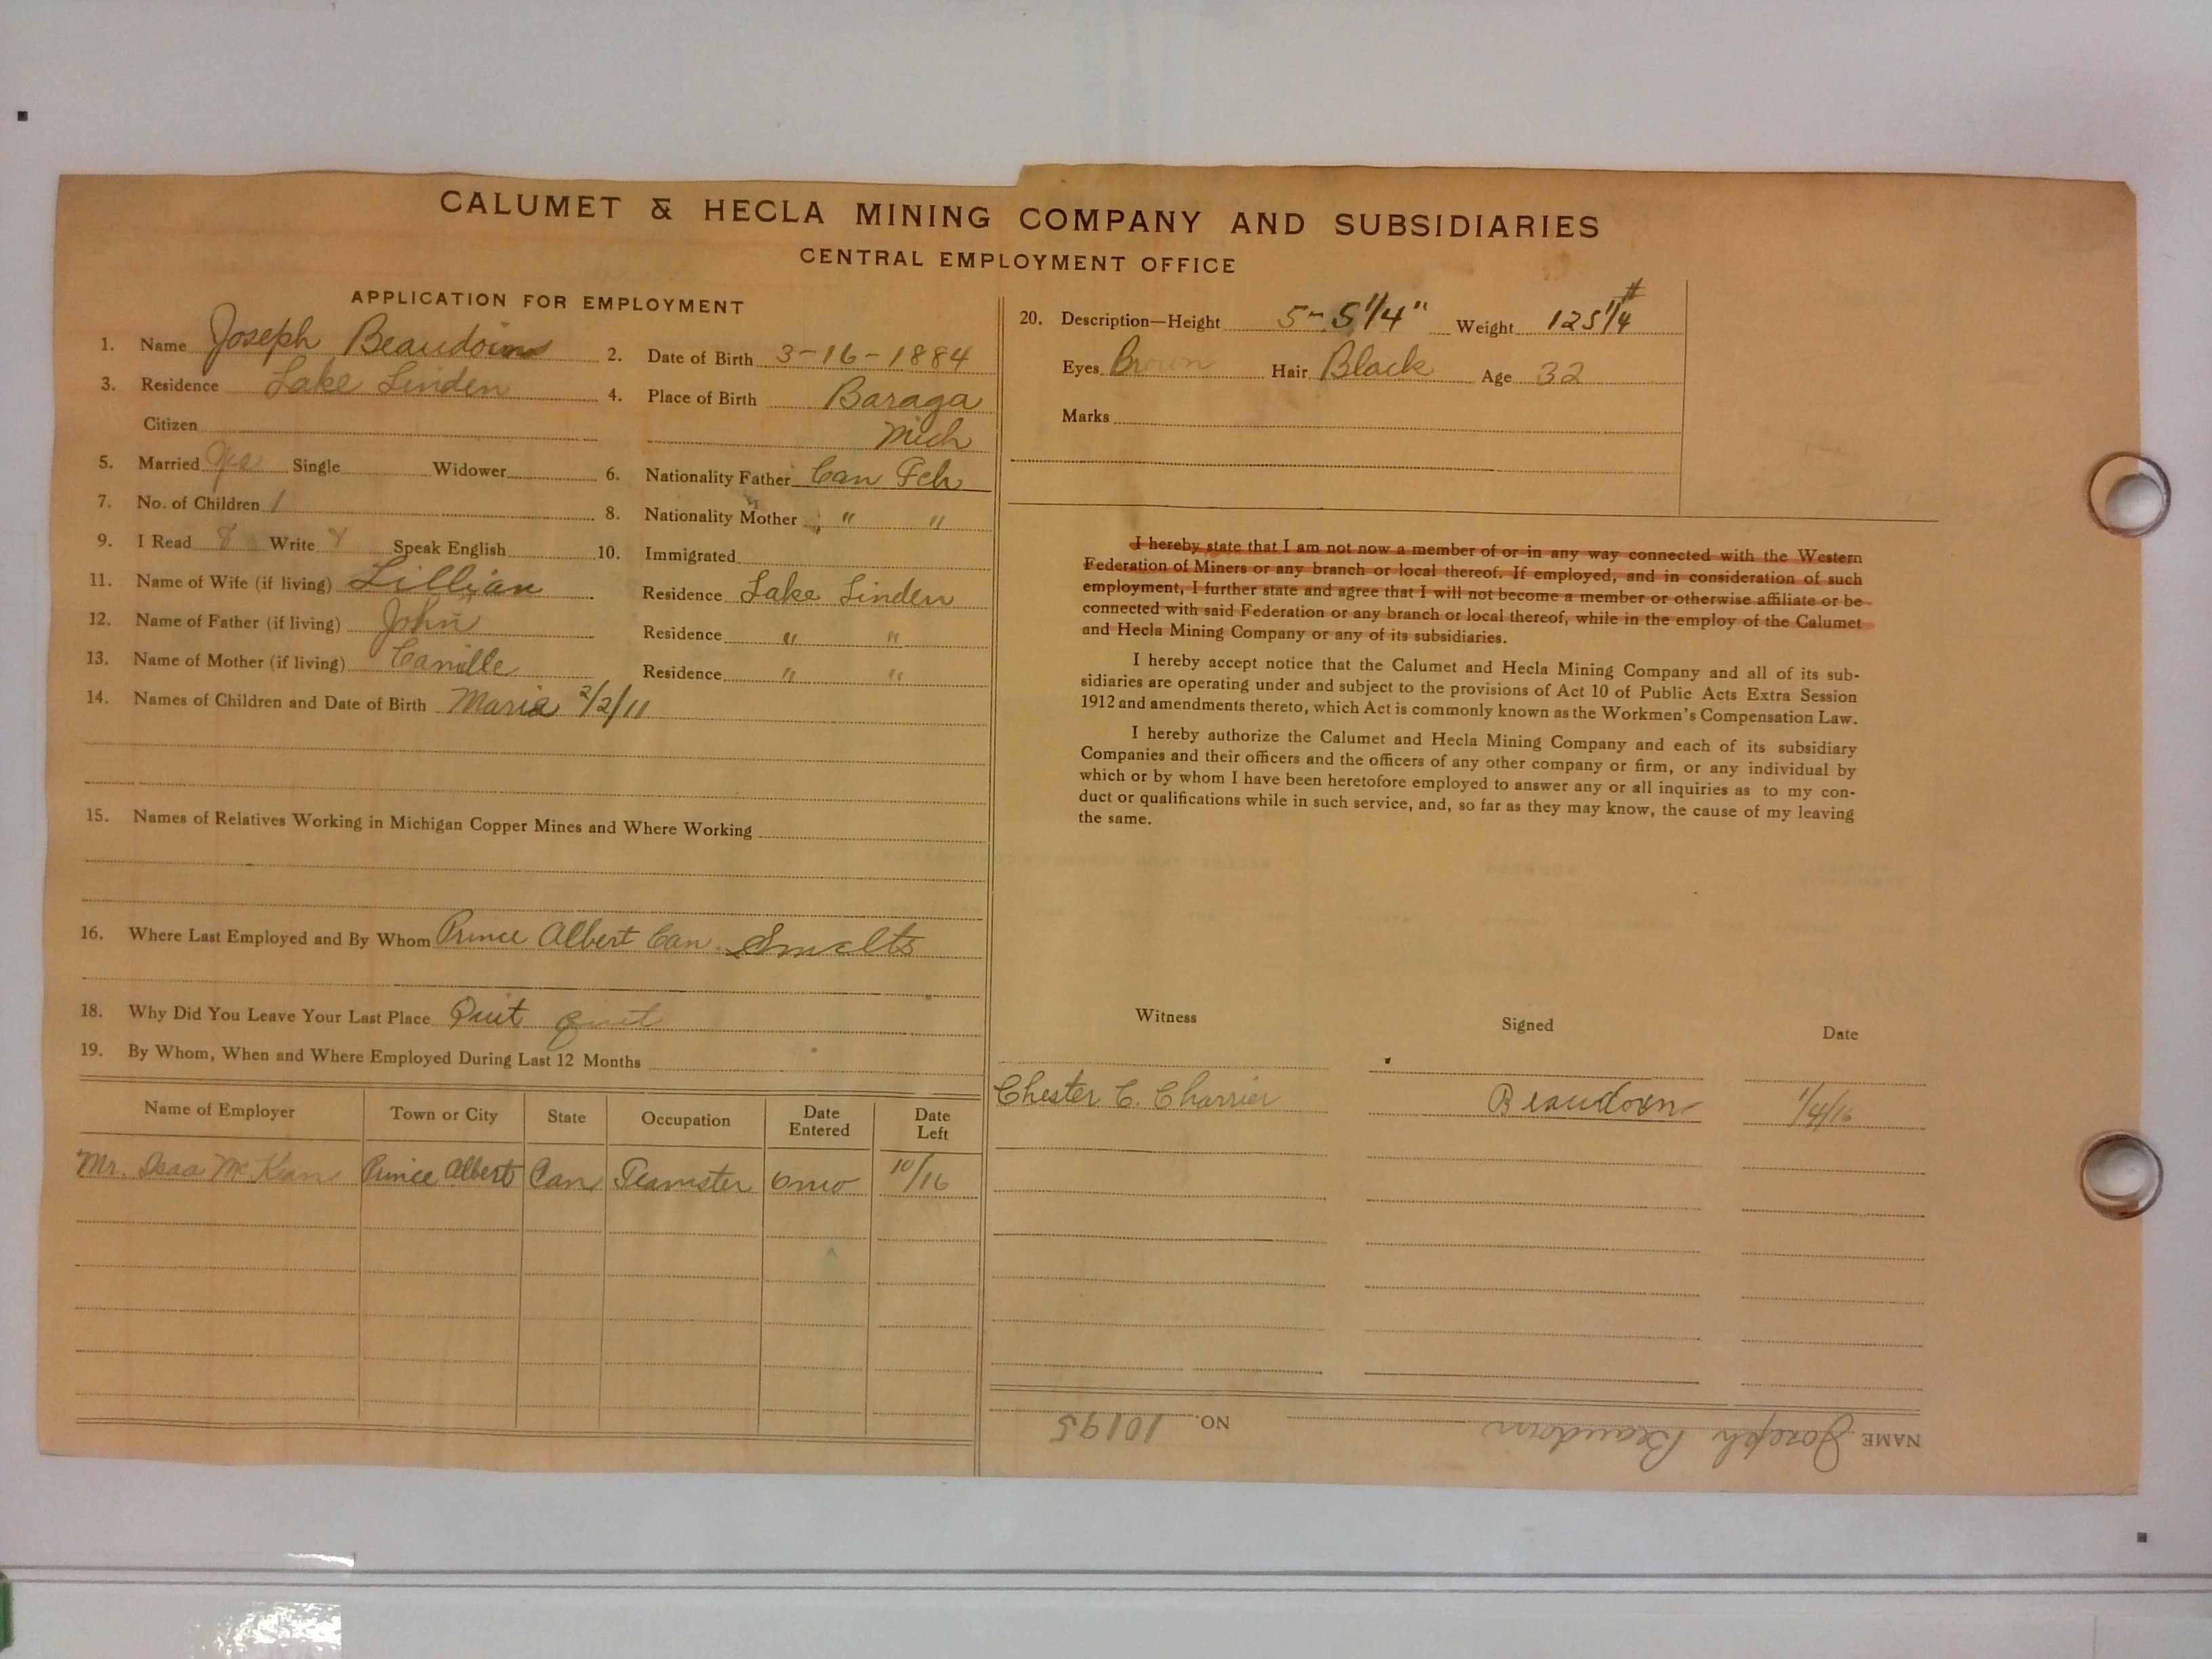 CALUMET & HECLA MINING COMPANY AND SUBSIDIARIES
CENTRAL EMPLOYMENT OFFICE
APPLICATION FOR EMPLOYMENT
1. Name Joseph Beaudoin 2. Date of Birth 3-16-1884
3. Residence Lake Linden 4. Place of Birth Baraga
Citizen Mich
5. Married Yes Single Widower 6. Nationality Father Can Fch
7. No. of Children 1 8. Nationality Mother " "
9. I Read Y Write Y Speak English 10. Immigrated
11. Name of Wife (if living) Lillian Residence Lake Linden
12. Name of Father (if living) John Residence " "
13. Name of Mother (if living) Camille Residence " "
14. Names of Children and Date of Birth Maria 2/2/11
15. Names of Relatives Working in Michigan Copper Mines and Where Working
16. Where Last Employed and By Whom Prince Albert Can. Smelts
18. Why Did You Leave Your Last Place Quit quit
19. By Whom, When and Where Employed During Last 12 Months
Name of Employer Town or City State Occupation Date Entered Date Left
Mr. McKean Prince Albert Can Teamster 6mo 10/16
20. Description—Height 5-5 1/4" Weight 125 1/4 #
Eyes Brown Hair Black Age 32
Marks
I hereby state that I am not now a member of or in any way connected with the Western
Federation of Miners or any branch or local thereof. If employed, and in consideration of such
employment, I further state and agree that I will not become a member or otherwise affiliate or be
connected with said Federation or any branch or local thereof, while in the employ of the Calumet
and Hecla Mining Company or any of its subsidiaries.
I hereby accept notice that the Calumet and Hecla Mining Company and all of its sub-
sidiaries are operating under and subject to the provisions of Act 10 of Public Acts Extra Session
1912 and amendments thereto, which Act is commonly known as the Workmen's Compensation Law.
I hereby authorize the Calumet and Hecla Mining Company and each of its subsidiary
Companies and their officers and the officers of any other company or firm, or any individual by
which or by whom I have been heretofore employed to answer any or all inquiries as to my con-
duct or qualifications while in such service, and, so far as they may know, the cause of my leaving
the same.
Witness Signed Date
Chester C. Charrier Beaudoin 1/4/16
NAME Joseph Beaudoin NO. 10195